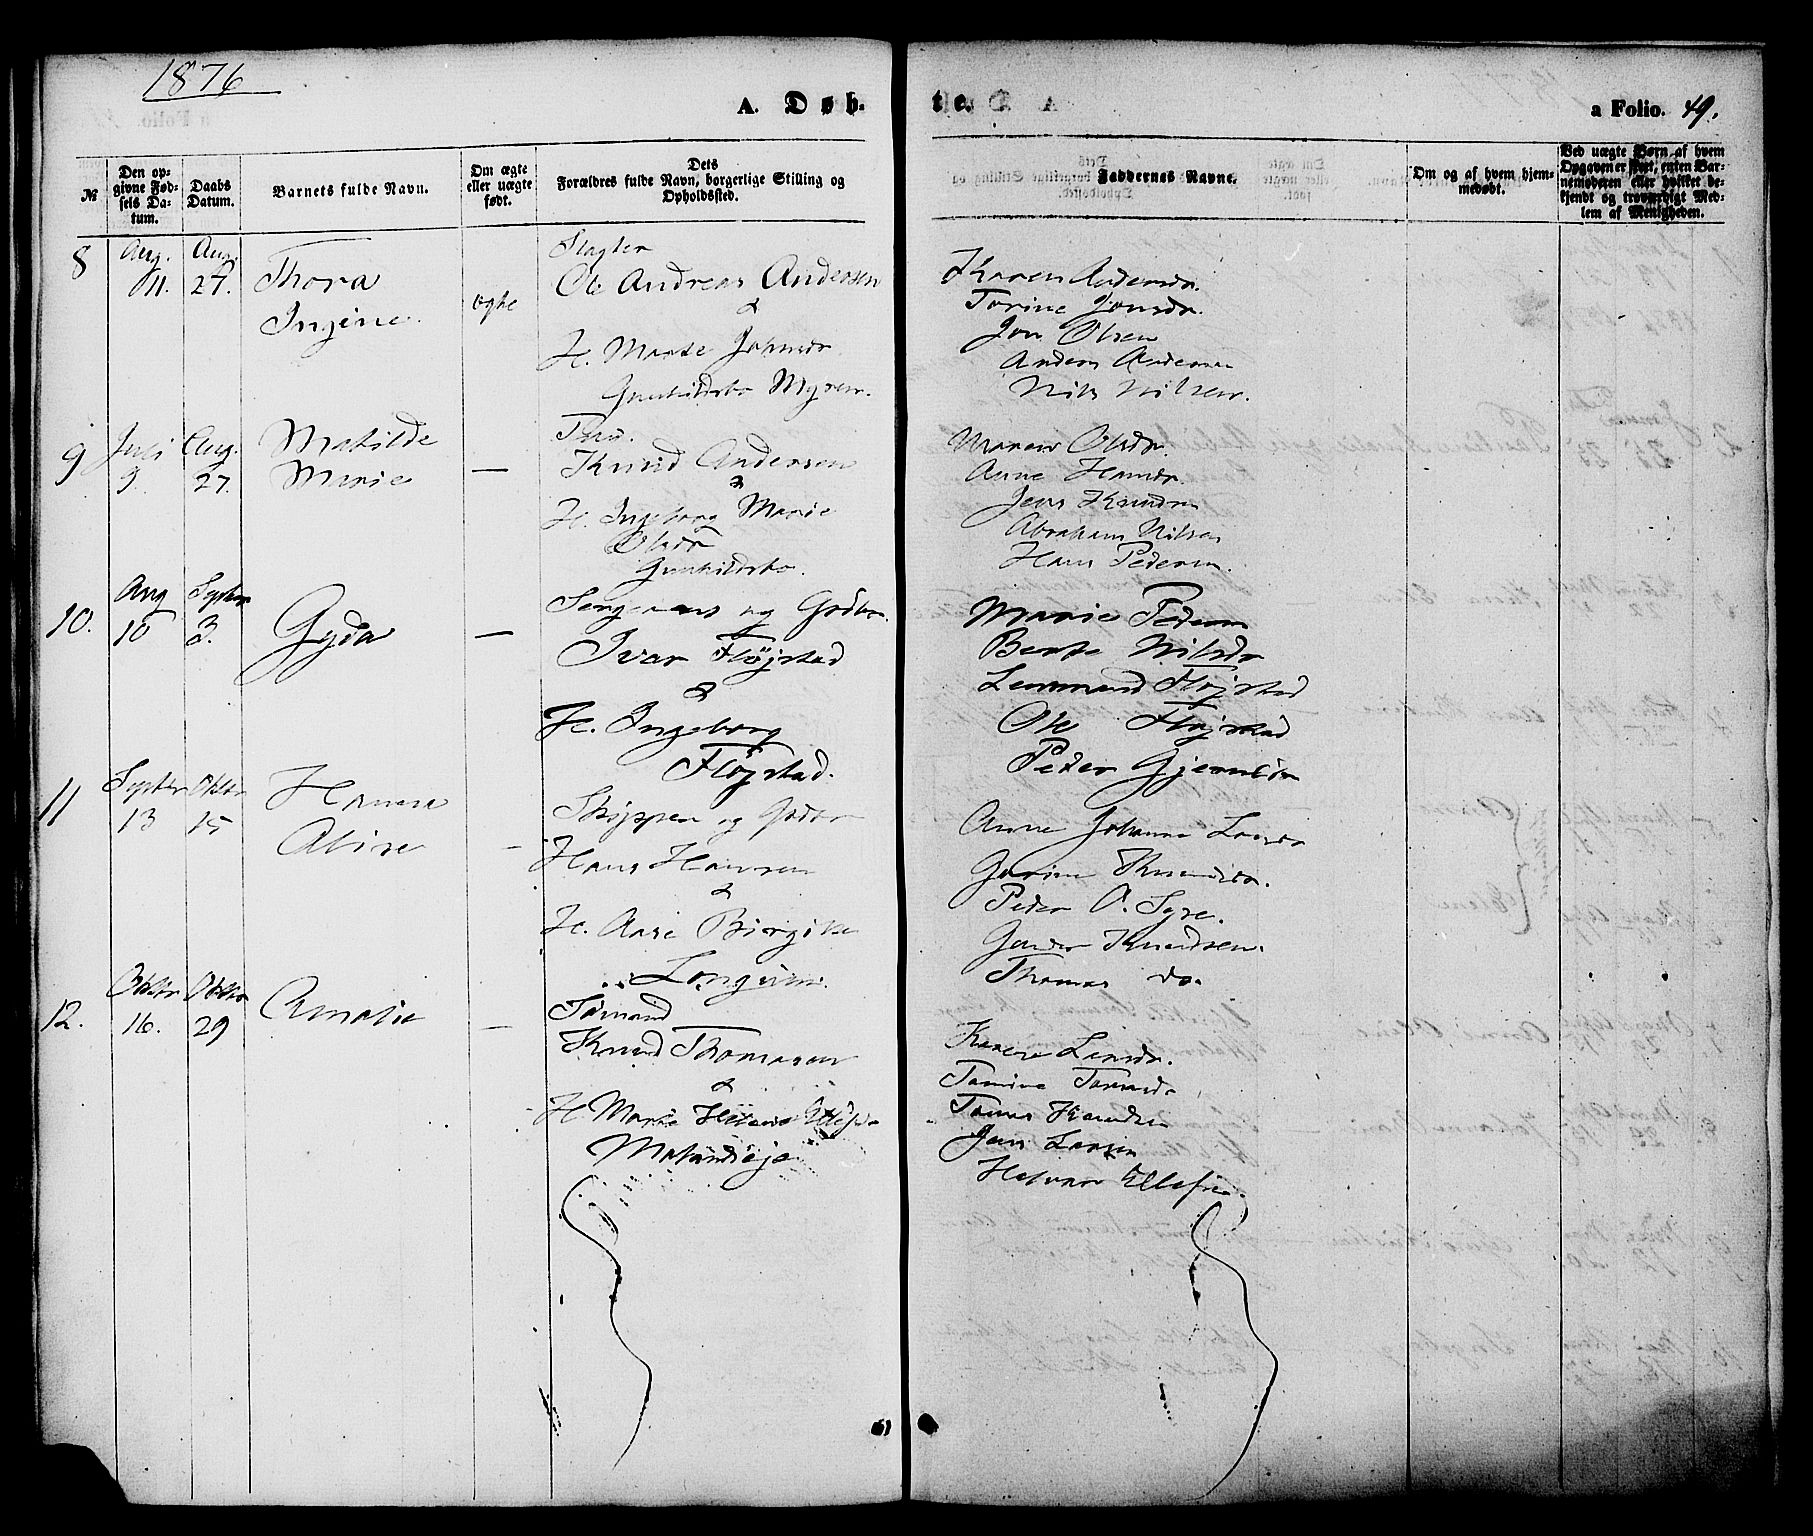 1876
A. Døb-
te.
a Folio. 49.
№
Den op-
givne Fød-
sels Da-
tum.
Daabs
Datum.
Barnets fulde Navn.
Om ægte
eller uægte
født.
Dets
Forældres fulde Navn, borgerlige Stilling og
Opholdssted.
Faddernes Navne.
Om og af hvem hjem-
medøbt.
Ved uægte Børn af hvem
Opgaven er skeet, enten Bar-
nemoderen eller hvilket be-
kjendt og troværdigt Med-
lem af Menigheden.
8
Aug.
11.
Aug.
27.
Thora
Ingine.
ægte
Slagter
Ole Andreas Andersen
&
H. Marte Johnsdr.
Gunhildsbo Myren.
Karen Andersdr.
Torine Jonsdr.
Jon Olsen
Anders Andersen
Nils Nilsen.
9
Juli
9.
Aug.
27.
Matilde
Marie
—
Knud Andersen
&
H. Ingeborg Marie
Olsdr
Gunhildsbo.
Maren Olsdr.
Anne Hansdr.
Jens Knudsen
Abraham Nilsen
Hans Pedersen.
10.
Aug
10
Septbr
3.
Gyda
—
og Grdbr.
Ivar Fløjstad
&
H. Ingeborg
Fløjstad.
Marie Pedersen
Berte Nilsdr
Fløjstad
Ole Fløjstad
Peder
11
Septbr
13
Oktbr
15
Hanna
Aline
—
Skipper og Grdbr
Hans Hansen
&
H. Aase Birgitte
Anne Johanne Larsdr
Gurine Knudsdr.
Peder O.
Gunder Knudsen.
Thomas do.
12.
Oktbr
16.
Oktbr
29
Amalie
—
Sømand
Knud Thomasen
&
H Marie Helene Ellefsdr
Karen Larsdr.
Tomine
Knudsen
Jens Larsen
Halvor Ellefsen.